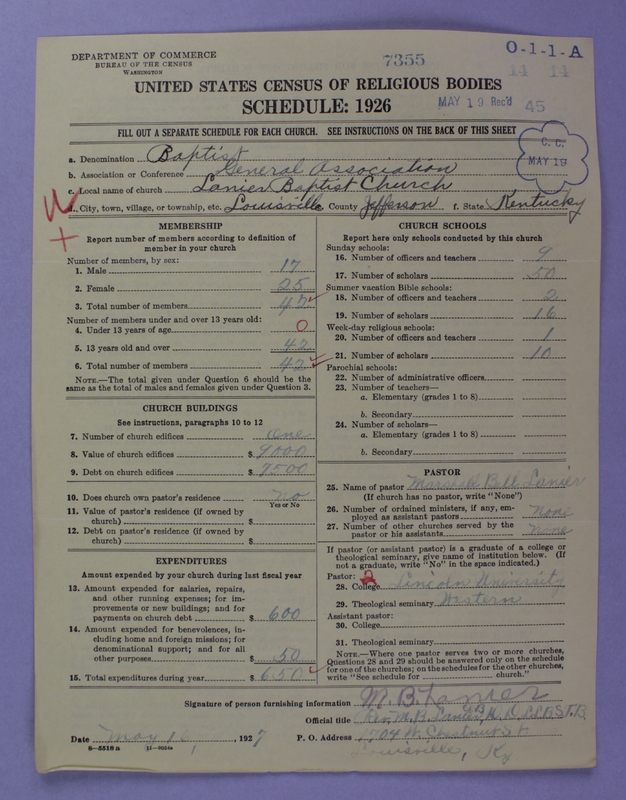 DEPARTMENT OF COMMERCE
BUREAU OF THE CENSUS
WASHINGTON
7355
O-1-1-A
14 14
UNITED STATES CENSUS OF RELIGIOUS BODIES
SCHEDULE: 1926
MAY 19 Rec'd
45
FILL OUT A SEPARATE SCHEDULE FOR EACH CHURCH. SEE INSTRUCTIONS ON THE BACK OF THIS SHEET
C. C.
MAY 19
a. Denomination Baptist
b. Association or Conference General Association
c. Local name of church Lanier Baptist Church
d. City, town, village, or township, etc. Louisville County Jefferson f. State Kentucky
MEMBERSHIP
Report number of members according to definition of member in your church
Number of members, by sex:
1. Male 17
2. Female 25
3. Total number of members 42
Number of members under and over 13 years old:
4. Under 13 years of age 0
5. 13 years old and over 42
6. Total number of members 42
NOTE.—The total given under Question 6 should be the same as the total of males and females given under Question 3.
CHURCH BUILDINGS
See instructions, paragraphs 10 to 12
7. Number of church edifices one
8. Value of church edifices $ 9000
9. Debt on church edifices $ 7500
10. Does church own pastor's residence no
Yes or No
11. Value of pastor's residence (if owned by church) $
12. Debt on pastor's residence (if owned by church) $
EXPENDITURES
Amount expended by your church during last fiscal year
13. Amount expended for salaries, repairs, and other running expenses; for improvements or new buildings; and for payments on church debt $ 600
14. Amount expended for benevolences, including home and foreign missions; for denominational support; and for all other purposes $ 50
15. Total expenditures during year $ 650
CHURCH SCHOOLS
Report here only schools conducted by this church
Sunday schools:
16. Number of officers and teachers 9
17. Number of scholars 50
Summer vacation Bible schools:
18. Number of officers and teachers 2
19. Number of scholars 16
Week-day religious schools:
20. Number of officers and teachers 1
21. Number of scholars 10
Parochial schools:
22. Number of administrative officers
23. Number of teachers—
a. Elementary (grades 1 to 8)
b. Secondary
24. Number of scholars—
a. Elementary (grades 1 to 8)
b. Secondary
PASTOR
25. Name of pastor Marshall Bell Lanier
(If church has no pastor, write "None")
26. Number of ordained ministers, if any, employed as assistant pastors None
27. Number of other churches served by the pastor or his assistants None
If pastor (or assistant pastor) is a graduate of a college or theological seminary, give name of institution below. (If not a graduate, write "No" in the space indicated.)
Pastor:
28. College Lincoln University
29. Theological seminary Western
Assistant pastor:
30. College
31. Theological seminary
NOTE.—Where one pastor serves two or more churches, Questions 28 and 29 should be answered only on the schedule for one of the churches; on the schedules for the other churches, write "See schedule for church."
Signature of person furnishing information M. B. Lanier
Official title Rev. M. B. Lanier
Date May 16, 1927 P. O. Address 1704 W. Chestnut St
Louisville, Ky
8-5518 a